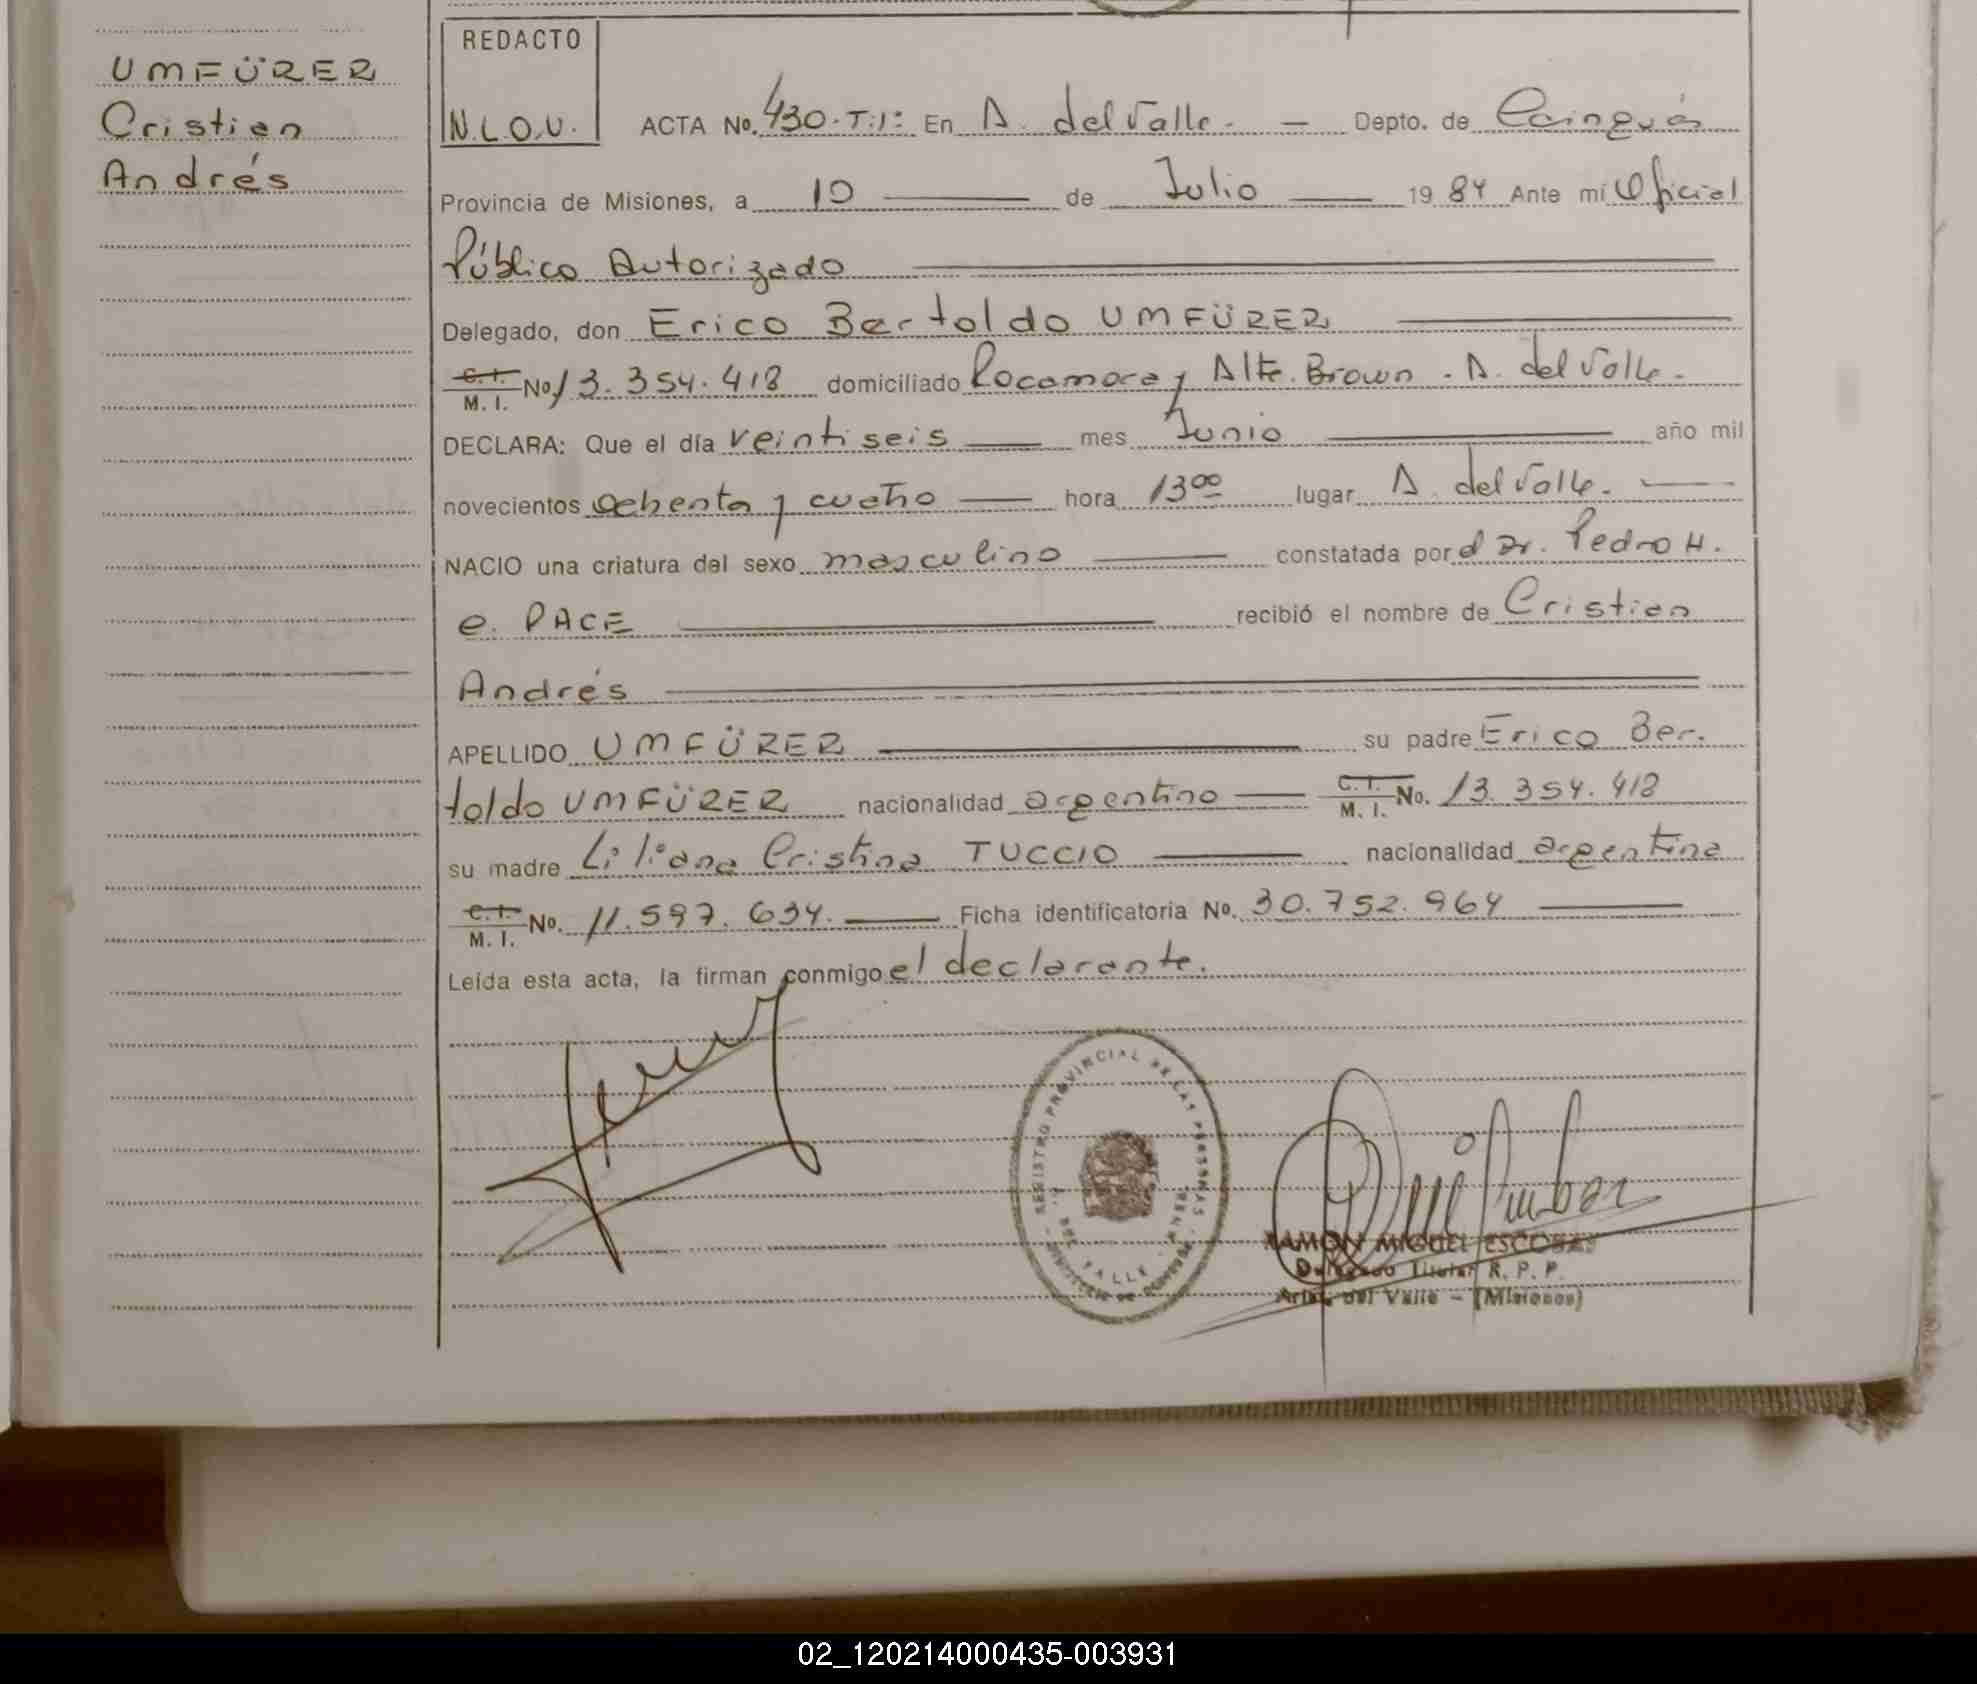 UMFÜRER
Cristian
Andrés
REDACTO
N.L.O.V.
ACTA No. 430.T.1: En A. del Valle. — Depto. de Cainguás
Provincia de Misiones, a 10 de Julio 1984 Ante mí Oficial
Público Autorizado
Delegado, don Erico Bertoldo UMFÜRER
C.I. M.I. No. 13.354.418 domiciliado Rocamora y Alte. Brown . A. del Valle.
DECLARA: Que el día veintiseis mes Junio año mil
novecientos ochenta y cuatro hora 13 00 lugar A. del Valle.
NACIO una criatura del sexo masculino constatada por el Dr. Pedro H.
e. PACE recibió el nombre de Cristian
Andrés
APELLIDO UMFÜRER su padre Erico Ber.
toldo UMFÜRER nacionalidad argentino C.I. M.I. No. 13.354.418
su madre Liliana Cristina TUCCIO nacionalidad argentina
C.I. M.I. No. 11.597.634. Ficha identificatoria No. 30.752.964
Leída esta acta, la firman conmigo el declarante.
REGISTRO PROVINCIAL DE LAS PERSONAS
DEL VALLE
RAMON MIGUEL ESCOBAR
Delegado Titular R. P. P.
Arist. del Valle - (Misiones)
02_120214000435-003931